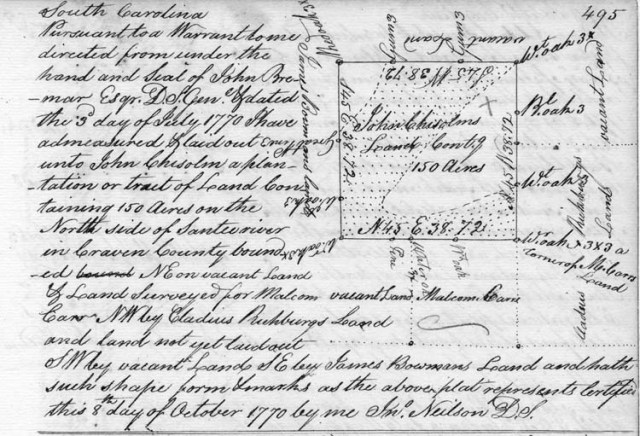 South Carolina
Pursuant to a Warrant to me
directed from under the
hand and Seal of John Bre-
-mar Esqr. D. S. Gen. dated
the 3d day of July 1770 I have
admeasured & laid out
unto John Chisolm a plan-
tation or tract of Land Con-
taining 150 Acres on the
North side of Santee river
in Craven County bound-
-ed NE on vacant Land
& Land Surveyed for Malcom
Carr NW by Cladius Richburgs Land
and Land not yet laid out
SW by vacant Land SE by James Bowmans Land and hath
such shape form & marks as the above plat represents Certified
this 8th day of October 1770 by me Jno. Neilson D.S.
495
James Bowmans land
vacant Land
Wt oak 3x
Bl oak 3
Wt oak 3
Wt oak x3x3 a
corner of M. Carrs
Land
vacant Land
Cladius Richburgs
Lands
John Chisolms
Land Contg
150 Acres
S 45 E 38.72
N 45 E. 38.72
Pine
vacant Land
Malcom Carr